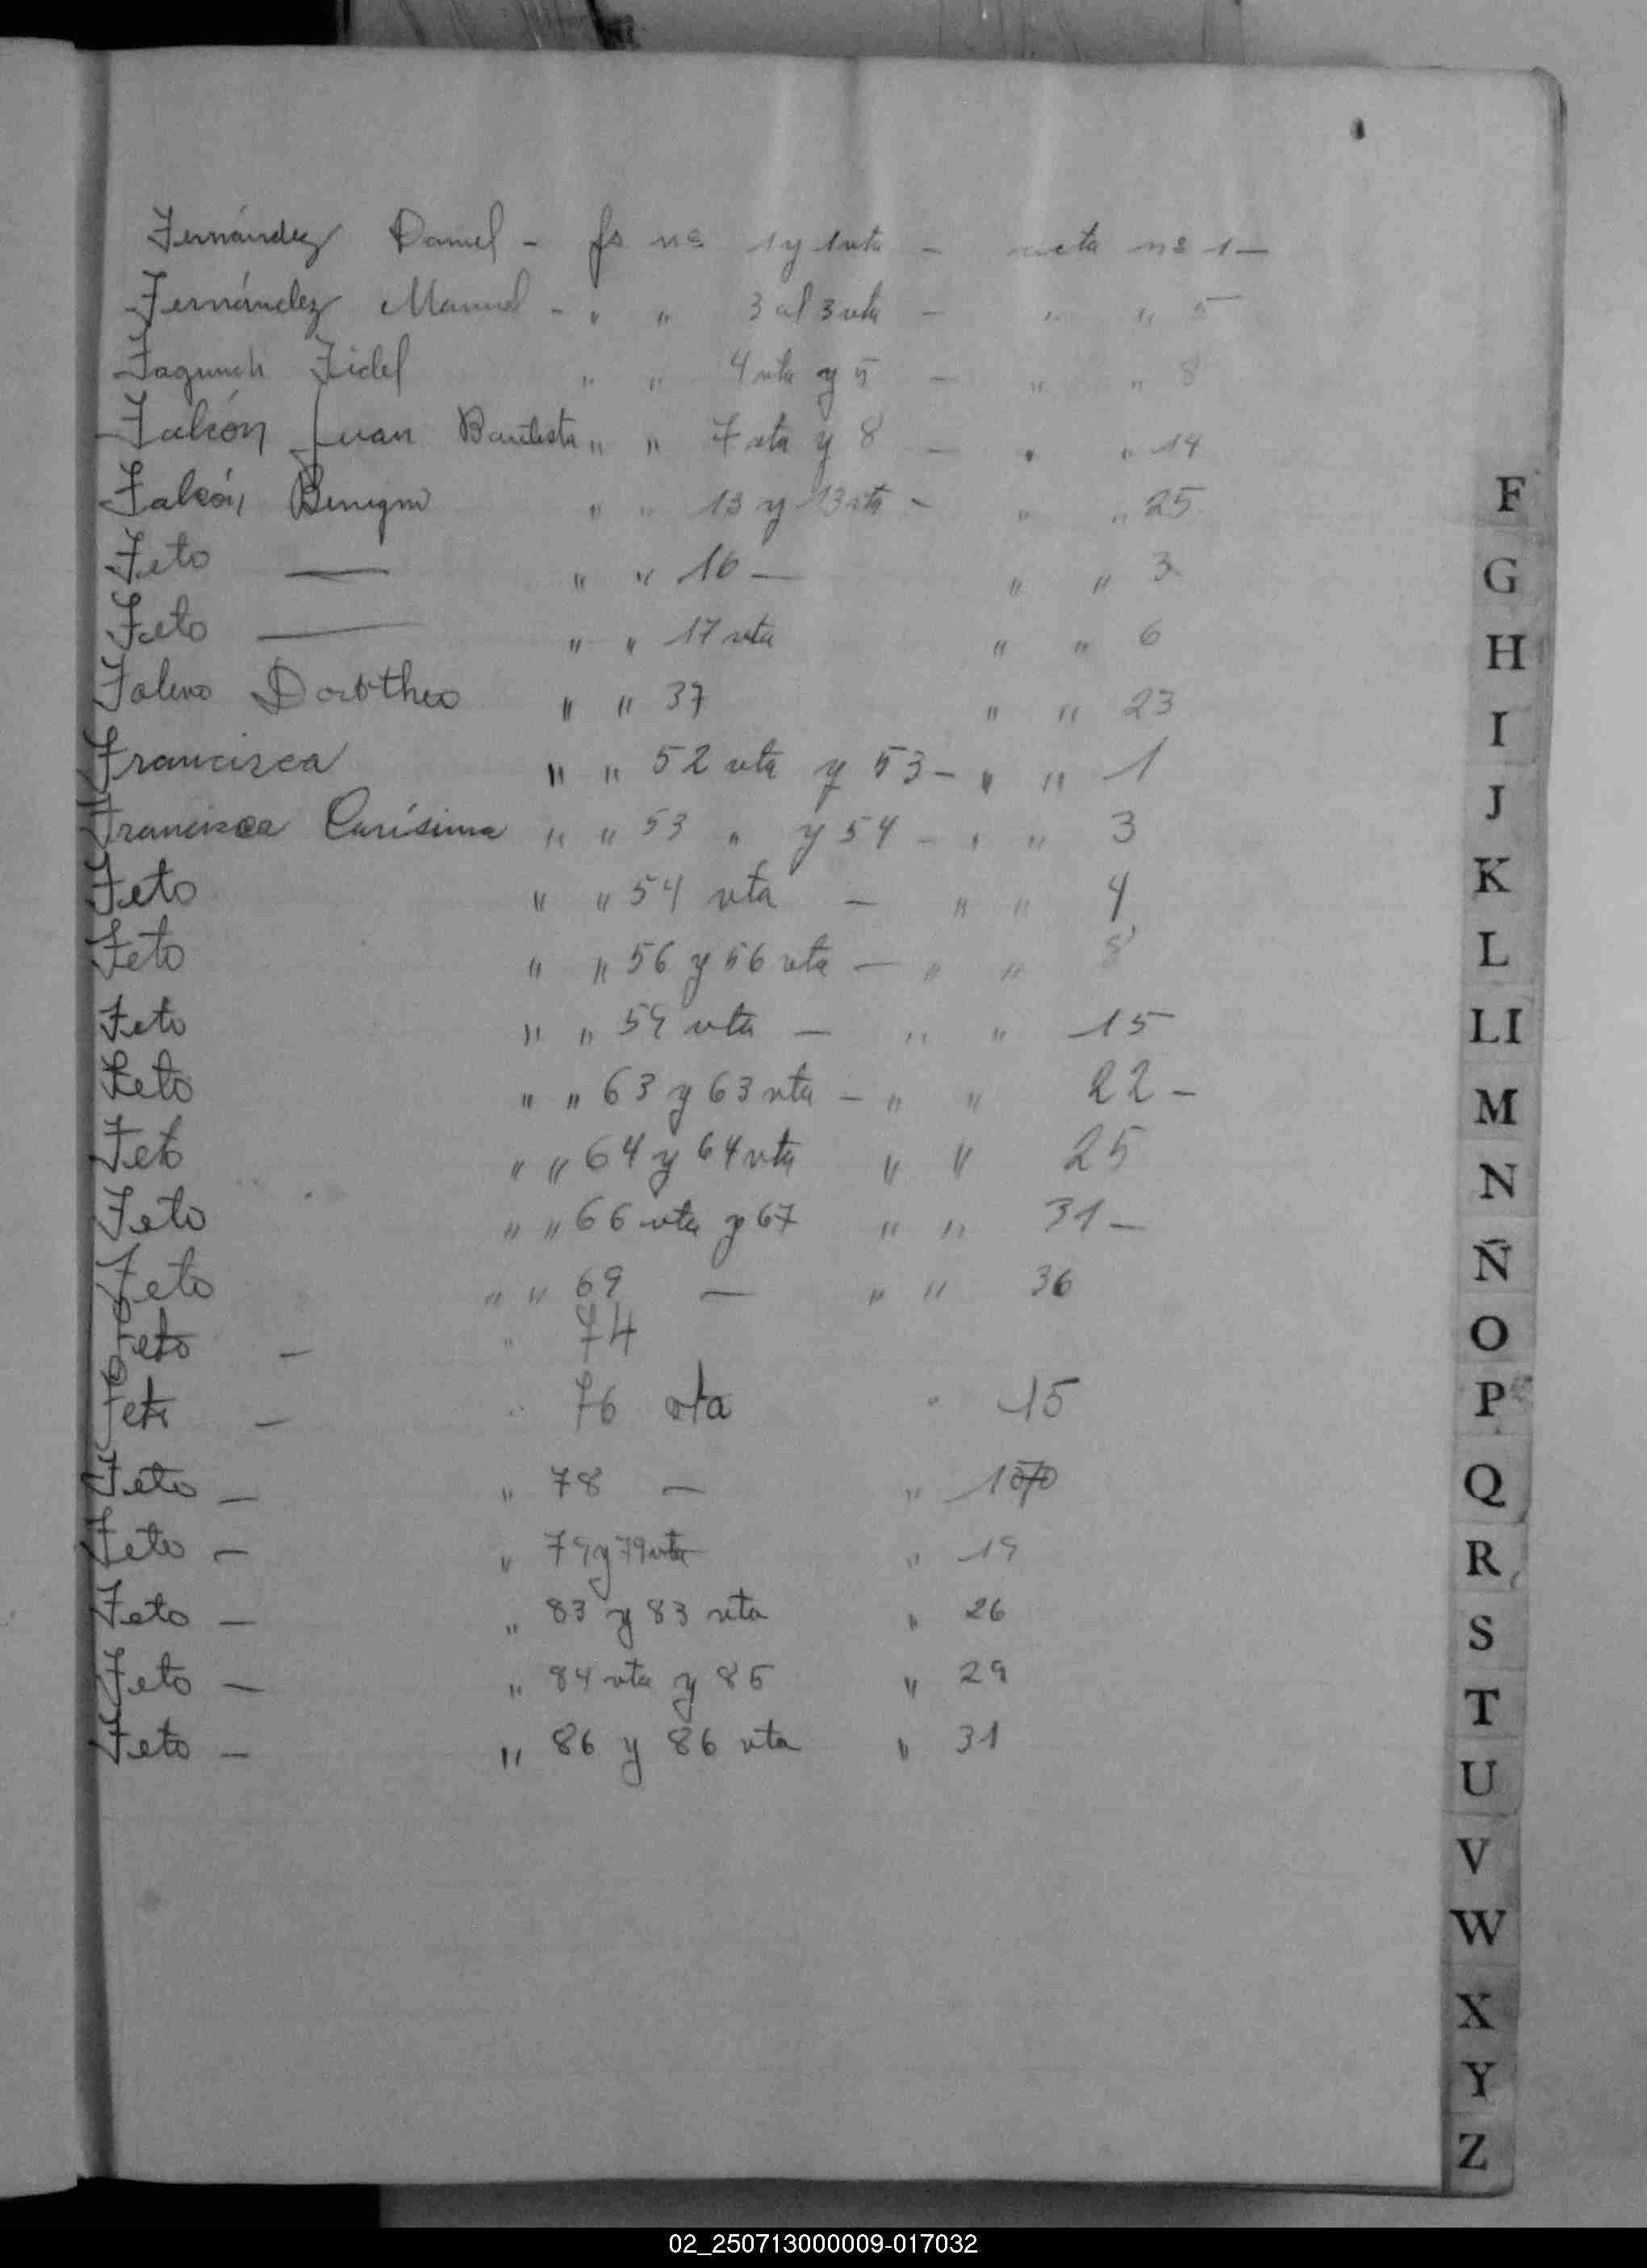 Fernández Daniel - fs nº 1 y 1 vta - acta nº 1 -
Fernández Manuel - " " 3 al 3 vta - " " 5
Fidel " " 4 vta y 5 - " " 8
Falcón Juan Bautista " " 7 vta y 8 - " " 14
Falcón, Benigno " " 13 y 13 vta - " " 25
Feto — " " 16 — " " 3
Feto — " " 17 vta " " 6
" " 37 " " 23
Francisca " " 52 vta y 53 - " " 1
Francisca Carísima " " 53 " y 54 - " " 3
Feto " " 54 vta — " " 4
Feto " " 56 y 56 vta — " " 8
Feto " " 59 vta — " " 15
Feto " " 63 y 63 vta - " " 22 -
Feto " " 64 y 64 vta " " 25
Feto " " 66 vta y 67 " " 31 -
Feto " " 69 — " " 36
Feto — " 74
Feto — " 76 vta " 15
Feto — " 78 — "
Feto — " 79 y 79 vta " 19
Feto — " 83 y 83 vta " 26
Feto — " 84 vta y 85 " 29
Feto — " 86 y 86 vta " 31
F
G
H
I
J
K
L
Ll
M
N
Ñ
O
P
Q
R
S
T
U
V
W
X
Y
Z
02_250713000009-017032